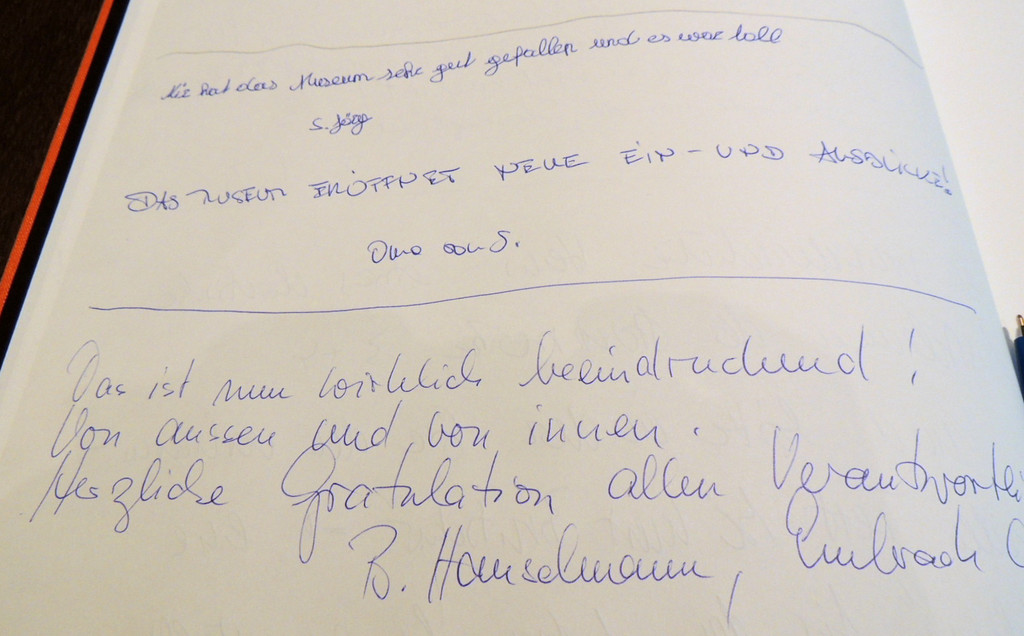 Mir hat das Museum sehr gut gefallen und es war toll
S.
DAS MUSEUM ERÖFFNET NEUE EIN- UND AUSBLICKE!
von S.
Das ist nun wirklich beeindruckend!
Von aussen und von innen.
Herzliche Gratulation allen Verantwortli
B. Hanselmann, Embrach